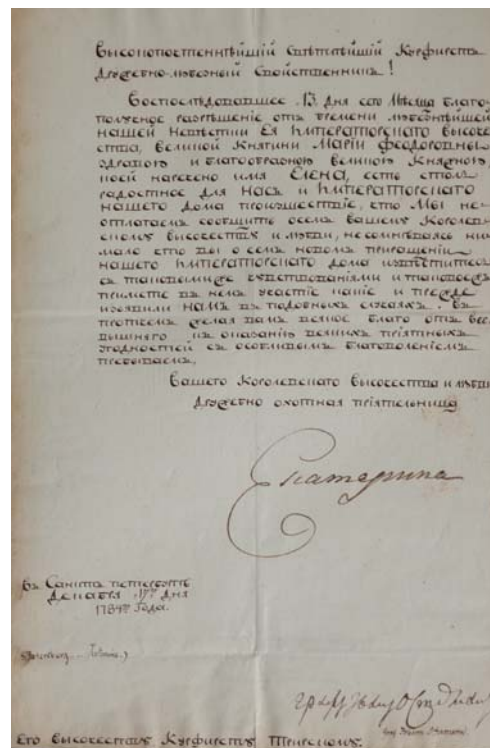 Высокопочтеннѣйшій Свѣтлѣйшій Курфирстъ
дружебно-любезный Свойственникъ!
Воспослѣдовавшее 13. дня сего Мѣсяца благо-
получное разрѣшеніе отъ бремени любезнѣйшей
нашей Невѣстки Ея Императорскаго высоче-
ства, великой Княгини Маріи Феодоровны
здравою и благообразною великою Княжною,
коей наречено имя Елена, есть столь
радостное для Насъ и Императорскаго
нашего Дома произшествіе, что Мы не-
оставляемъ сообщить о семъ вашему Королев-
скому высочеству и любви, несомнѣваясь ни-
мало что вы о семъ новомъ приращеніи
нашего Императорскаго дома
съ таковыми же чувствованіями и таковое жъ
примете въ немъ участіе какіе и прежде
изъявили намъ въ подобныхъ случаяхъ. Въ
протчемъ желая вамъ всякое благо отъ все-
вышняго къ оказанію всякихъ пріятныхъ
угодностей съ особливымъ благоволеніемъ
пребываемъ,
Вашего Королевскаго высочества и любви
дружебно охотная пріятельница
Екатерина
Въ Санкта петербургѣ
Декабря 17го дня
1784го Года.
графъ Иванъ Остерманъ
Его высочеству Курфирсту Трирскому.